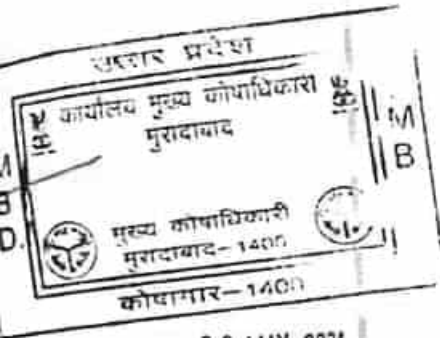 उत्तर प्रदेश
कार्यालय मुख्य कोषाधिकारी
मुरादाबाद
M
B
M
B
D.
मुख्य कोषाधिकारी
मुरादाबाद-1400
कोषागार-1400